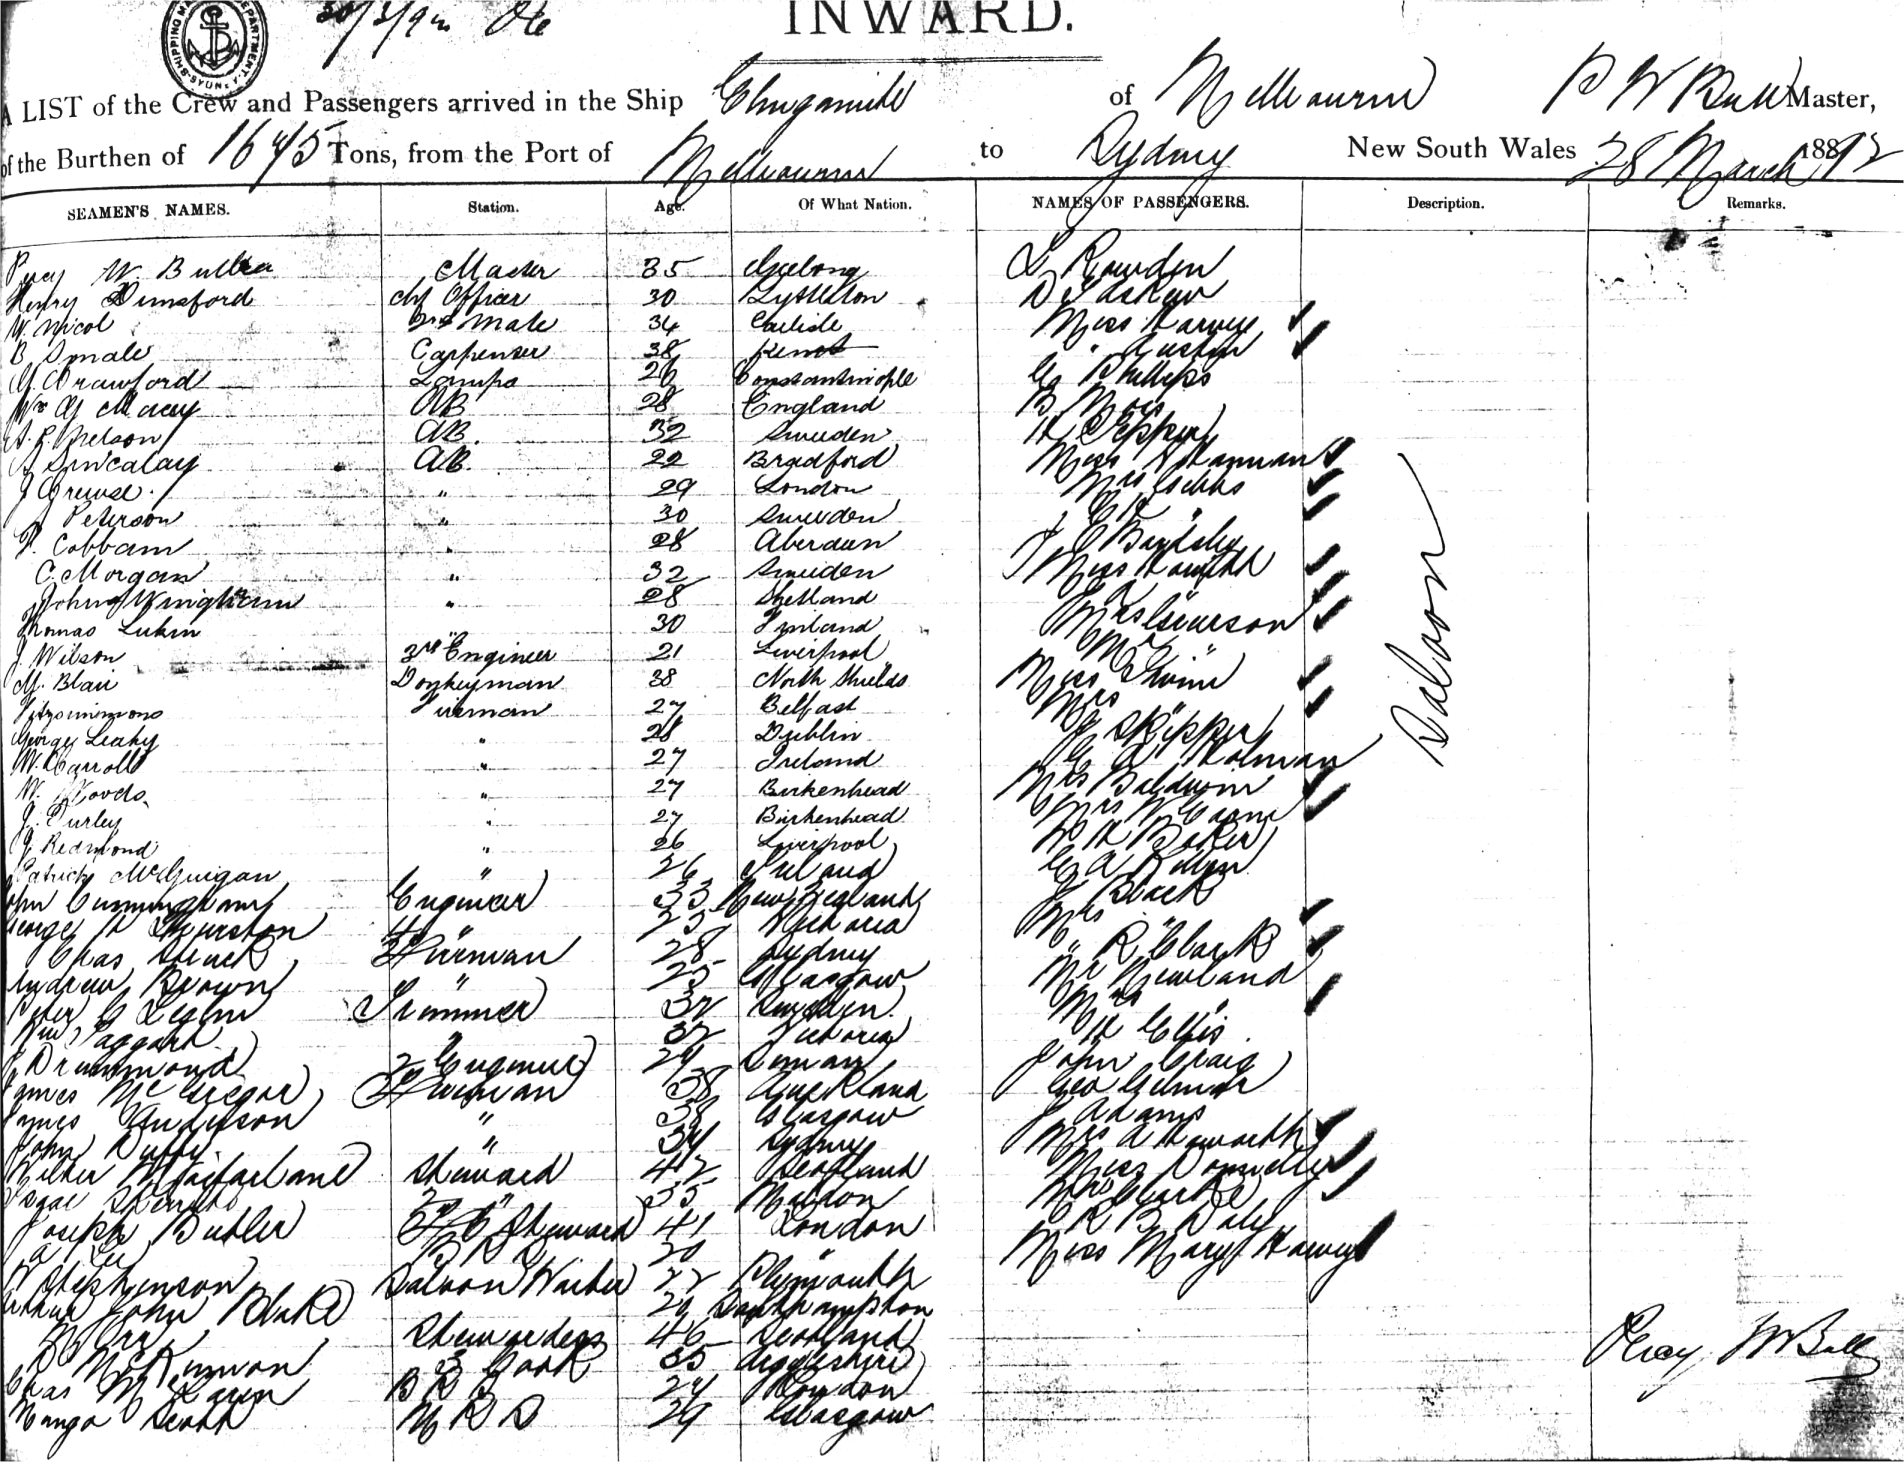 30/3/92
INWARD.
A LIST of the Crew and Passengers arrived in the Ship Elingamite of Melbourne P W Bull Master,
of the Burthen of 1675 Tons, from the Port of Melbourne to Sydney New South Wales 28 March 1892
SEAMEN'S NAMES. Station. Age. Of What Nation. NAMES OF PASSENGERS. Description. Remarks.
Percy W. Bull Master 35 Geelong L Rowden
Henry Dunsford chf Officer 30 Lyttleton D Gaskew
W. Nicol 2nd Mate 34 Carlisle Miss Harvey
B Smale Carpenter 38 Kent " Austin
G. Crawford Lamps 26 Constantinople G Phillips
Wm G Macey AB 28 England B Mois
A. P. Nelson AB. 32 Sweden H Pepper
AB. 22 Bradford Miss Hannan
J Grewse. " 29 London Mrs Gibbs
Peterson " 30 Sweden " "
P. Cobbam " 28 Aberdeen
C. Morgan " 32 Sweden Miss
John Wingham " 28 Shetland
Thomas Lukin 30 Finland Mrs Gearson
J. Wilson 3rd Engineer 21 Liverpool Mr "
M. Blair Donkeyman 38 North Shields Miss
Fitzsimmons Fireman 27 Belfast Mrs "
George Leahy " 28 Dublin J Skipper
W. Carroll " 27 Ireland G A Holman
W. Woods " 27 Birkenhead Mrs Baldwin
J. Durley " 27 Birkenhead Mrs W Carne
J. Redmond " 26 Liverpool W H Baker
Patrick McGuigan " 26 Ireland G A
John Cunningham Engineer 33 New Zealand J Black
George H Thurston 4 " 23 Victoria Mrs "
Chas Fireman 28 Sydney " R Clark
Andrew Brown " 25 Glasgow Mr Newland
Peter C Trimmer 32 Sweden Mrs "
Taggart " 32 Victoria H Ellis
J Drummond 2 Engineer 29 John Craig
James McGregor Fireman 38 Auckland Geo Gilmor
James Anderson " 38 Glasgow J Adams
John Duffy " 34 Sydney Mrs A Howarth
Macfarlane Steward 42 Scotland Miss Donnelly
Isaac 2 " 35 Maldon Mrs Clarke
Joseph Butler F C Steward 41 London R B Daly
A Lee B R S 20 " Miss Mary Harvey
W Stephenson Saloon Waiter 22 Plymouth
Arthur John Blake 29 Southampton
M Orr Stewardess 46 Scotland
D McKinnon 3 Cook 35 Argyleshire
Chas M Karen B R S 24 London
Mungo Scott M R S 29 Glasgow
Saloon
Percy W Bull